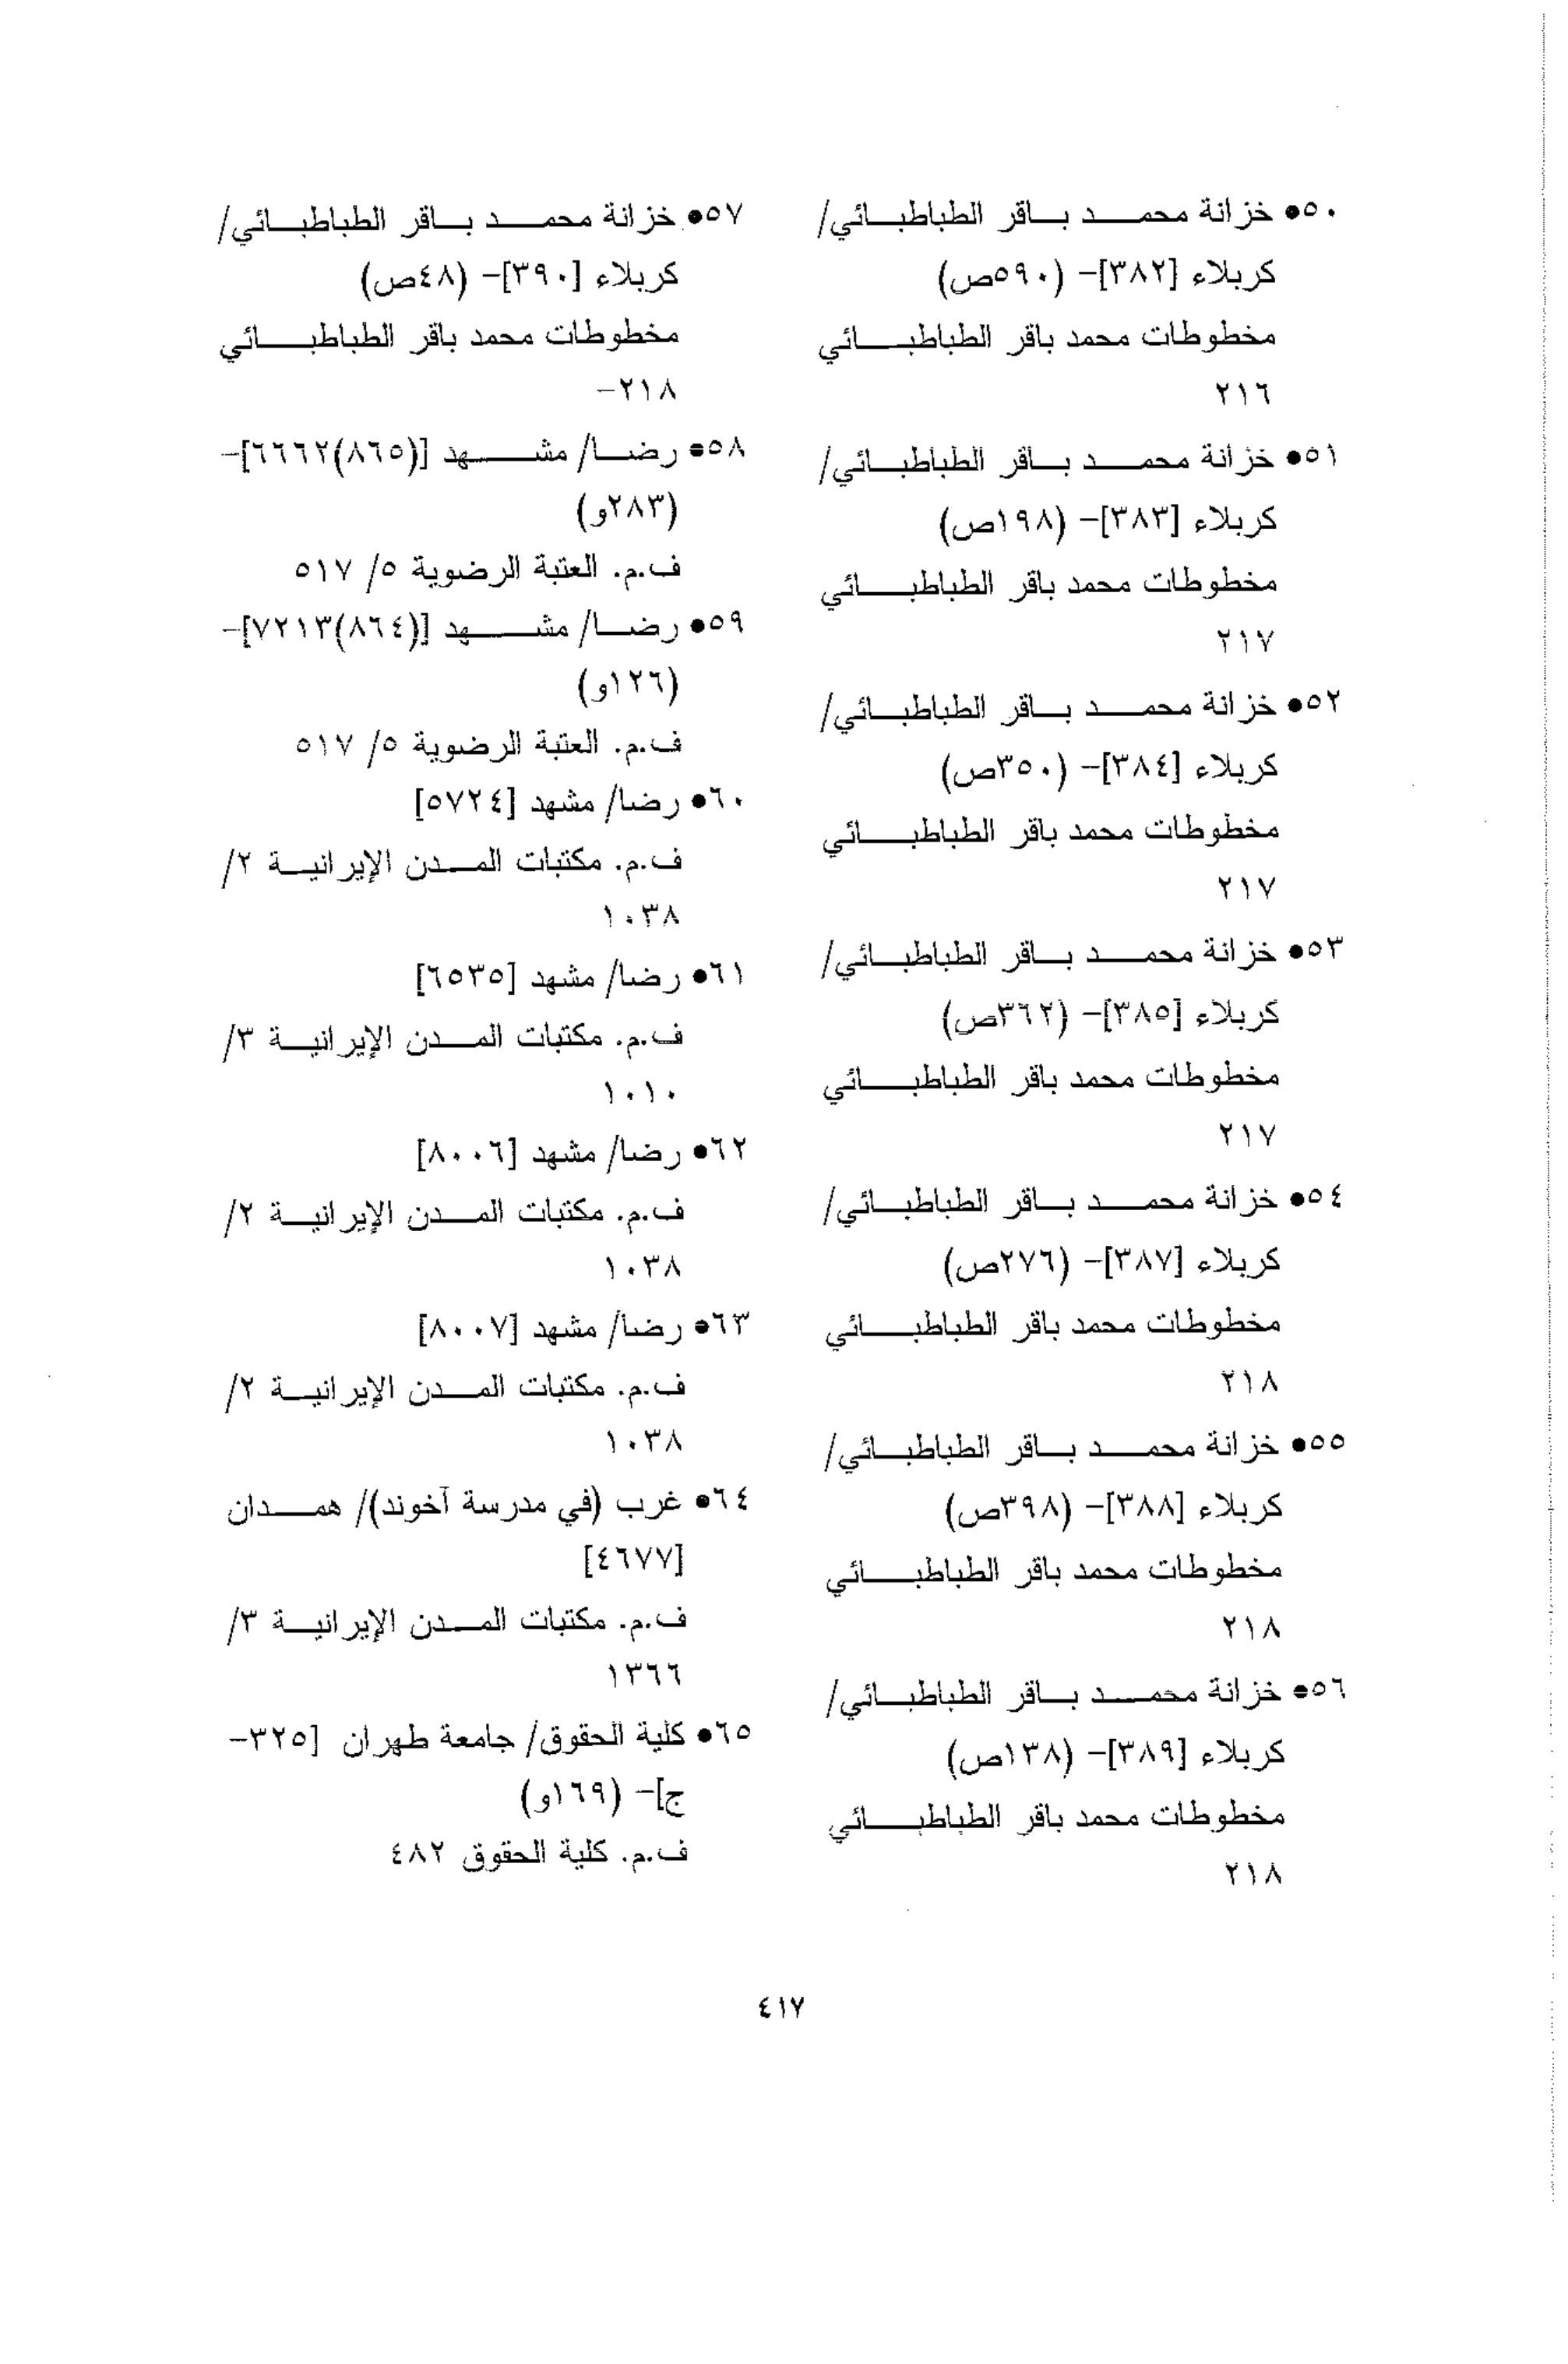 ٥٠● خزانة محمد باقر الطباطبائي/
كربلاء [٣٨٢]- (٥٩٠ص)
مخطوطات محمد باقر الطباطبائي
٢١٦
٥١● خزانة محمد باقر الطباطبائي/
كربلاء [٣٨٣]- (١٩٨ص)
مخطوطات محمد باقر الطباطبائي
٢١٧
٥٢● خزانة محمد باقر الطباطبائي/
كربلاء [٣٨٤]- (٣٥٠ص)
مخطوطات محمد باقر الطباطبائي
٢١٧
٥٣● خزانة محمد باقر الطباطبائي/
كربلاء [٣٨٥]- (٣٦٢ص)
مخطوطات محمد باقر الطباطبائي
٢١٧
٥٤● خزانة محمد باقر الطباطبائي/
كربلاء [٣٨٧]- (٢٧٦ص)
مخطوطات محمد باقر الطباطبائي
٢١٨
٥٥● خزانة محمد باقر الطباطبائي/
كربلاء [٣٨٨]- (٣٩٨ص)
مخطوطات محمد باقر الطباطبائي
٢١٨
٥٦● خزانة محمد باقر الطباطبائي/
كربلاء [٣٨٩]- (١٣٨ص)
مخطوطات محمد باقر الطباطبائي
٢١٨
٥٧● خزانة محمد باقر الطباطبائي/
كربلاء [٣٩٠]- (٤٨ص)
مخطوطات محمد باقر الطباطبائي
٢١٨-
٥٨● رضا/ مشهد [(٨٦٥)٦٦٦٢]-
(٢٨٣و)
ف.م. العتبة الرضوية ٥/ ٥١٧
٥٩● رضا/ مشهد [(٨٦٤)٧٢١٣]-
(١٢٦و)
ف.م. العتبة الرضوية ٥/ ٥١٧
٦٠● رضا/ مشهد [٥٧٢٤]
ف.م. مكتبات المدن الإيرانية ٢/
١٠٣٨
٦١● رضا/ مشهد [٦٥٣٥]
ف.م. مكتبات المدن الإيرانية ٣/
١٠١٠
٦٢● رضا/ مشهد [٨٠٠٦]
ف.م. مكتبات المدن الإيرانية ٢/
١٠٣٨
٦٣● رضا/ مشهد [٨٠٠٧]
ف.م. مكتبات المدن الإيرانية ٢/
١٠٣٨
٦٤● غرب (في مدرسة آخوند)/ همدان
[٤٦٧٧]
ف.م. مكتبات المدن الإيرانية ٣/
١٣٦٦
٦٥● كلية الحقوق/ جامعة طهران [٣٢٥-
ج]- (١٦٩و)
ف.م. كلية الحقوق ٤٨٢
٤١٧